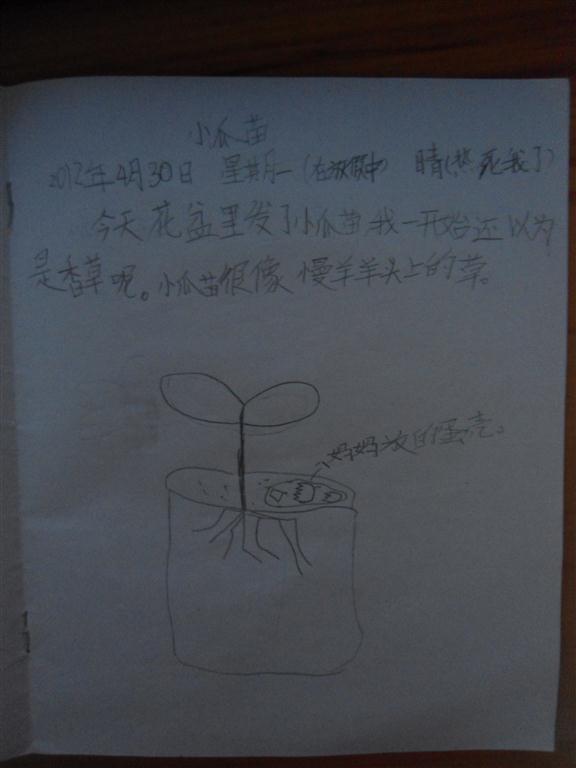 小瓜苗
2012年4月30日 星期一(在放假中) 晴(热死我了)
今天花盆里发了小瓜苗,我一开始还以为
是香草呢。小瓜苗很像慢羊羊头上的草。
妈妈放的蛋壳。